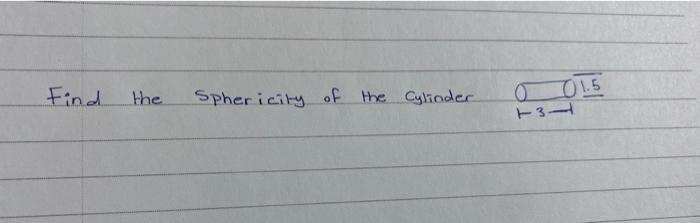 Find the Sphericity of the Cylinder 1.5
3